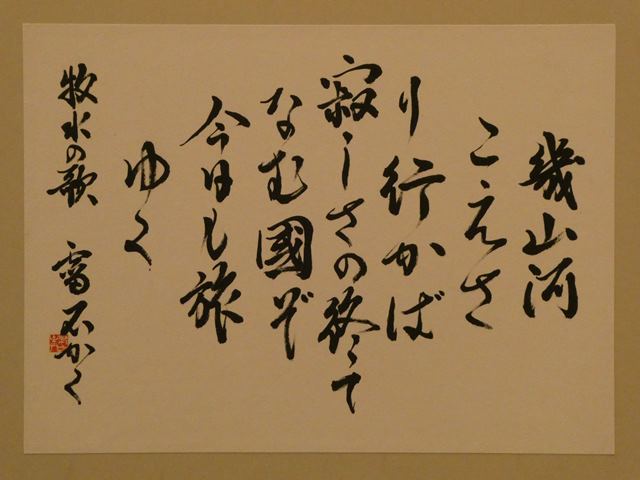 幾山河
こえさ
り行かば
寂しさの終て
なむ國ぞ
今日も旅
ゆく
牧水の歌 石かく